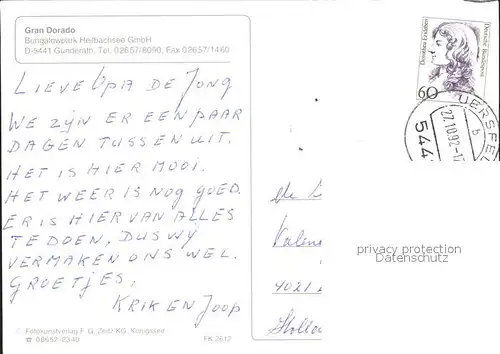 Gran Dorado
Bungalowpark Heilbachsee GmbH
D-5441 Gunderath, Tel. 02657/8090, Fax 02657/1460
LIEVE OPA DE JONG
WE ZYN ER EEN PAAR
DAGEN TUSSEN UIT.
HET IS HIER MOOI.
HET WEER IS NOG GOED.
ER IS HIER VAN ALLES
TE DOEN, DUS WY
VERMAKEN ONS WEL.
GROETJES,
KRIK EN JOOP
© Fotokunstverlag F. G. Zeitz KG, Königssee
☎ 08652-2340
FK 2612
Dorothea Erxleben
Deutsche Bundespost
60
UERSFEL
27.10.92-1
b
544
de
Kalen
4021
Holla
privacy protection
Datenschutz